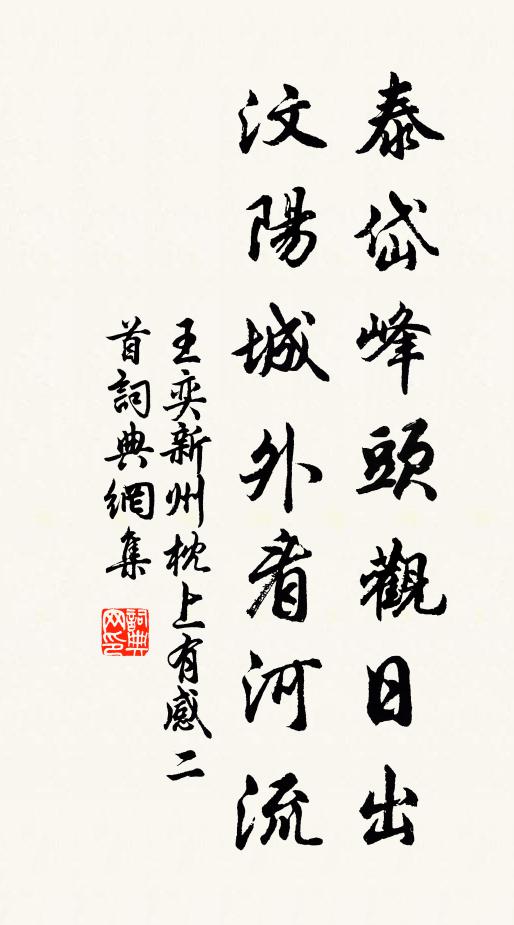 泰岱峰頭觀日出
汶陽城外看河流
王奕新州枕上有感二
首詞典網集
詞典
网印